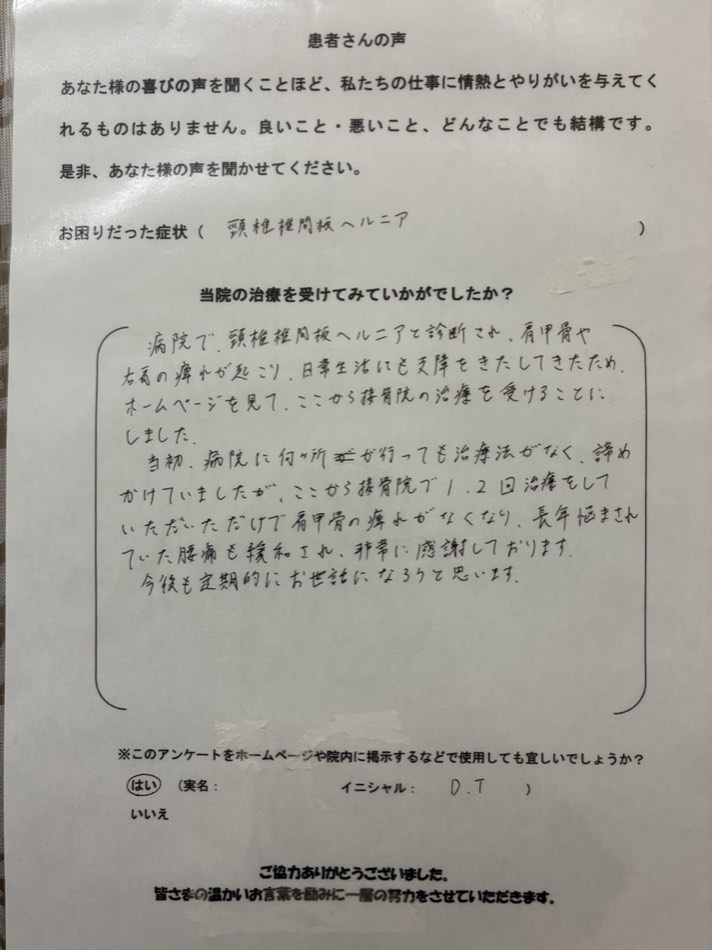 患者さんの声
あなた様の喜びの声を聞くことほど、私たちの仕事に情熱とやりがいを与えてく
れるものはありません。良いこと・悪いこと、どんなことでも結構です。
是非、あなた様の声を聞かせてください。
お困りだった症状（ 頸椎椎間板ヘルニア ）
当院の治療を受けてみていかがでしたか？
病院で、頸椎椎間板ヘルニアと診断され、肩甲骨や
右肩の痺れが起こり、日常生活にも支障をきたしてきたため、
ホームページを見て、ここから接骨院の治療を受けることに
しました。
当初、病院に何ヶ所か行っても治療法がなく、諦め
かけていましたが、ここから接骨院で1.2回治療をして
いただいただけで肩甲骨の痺れがなくなり、長年悩まされ
ていた腰痛も緩和され、非常に感謝しております。
今後も定期的にお世話になろうと思います。
※このアンケートをホームページや院内に掲示するなどで使用しても宜しいでしょうか？
はい （実名： イニシャル： D.T ）
いいえ
ご協力ありがとうございました。
皆さまの温かいお言葉を励みに一層の努力をさせていただきます。